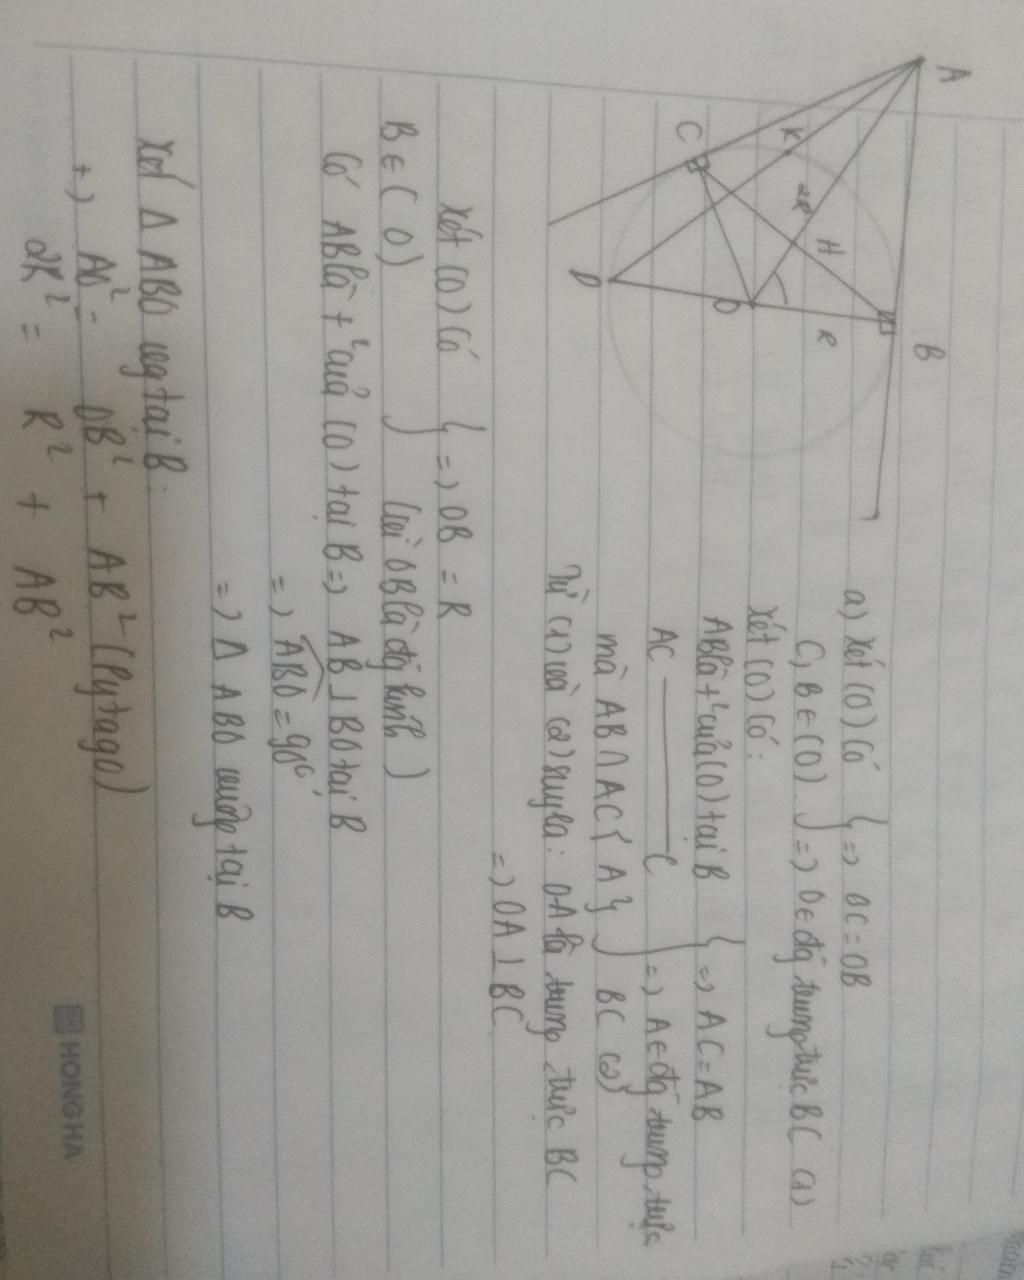 A
B
C
K
2R
H
R
O
D
a) Xét (O) Có } => OC = OB
C, B ∈ (O) => O ∈ đg trung trực BC (1)
Xét (O) có:
AB là t² của (O) tại B } => AC = AB
AC ——— C => A ∈ đg trung trực
mà AB ∩ AC { A } BC (2)
Từ (1) và (2) suy ra: OA là trung trực BC
=> OA ⊥ BC
Xét (O) Có } => OB = R
B ∈ ( O ) (vì OB là đg kính )
Có AB là t² của (O) tại B => AB ⊥ BO tại B
=> ABO = 90°
=> Δ ABO vuông tại B
Xét Δ ABO vg tại B.
+) AO² = OB² + AB² (Pytago)
2R² = R² + AB²
HONG HA